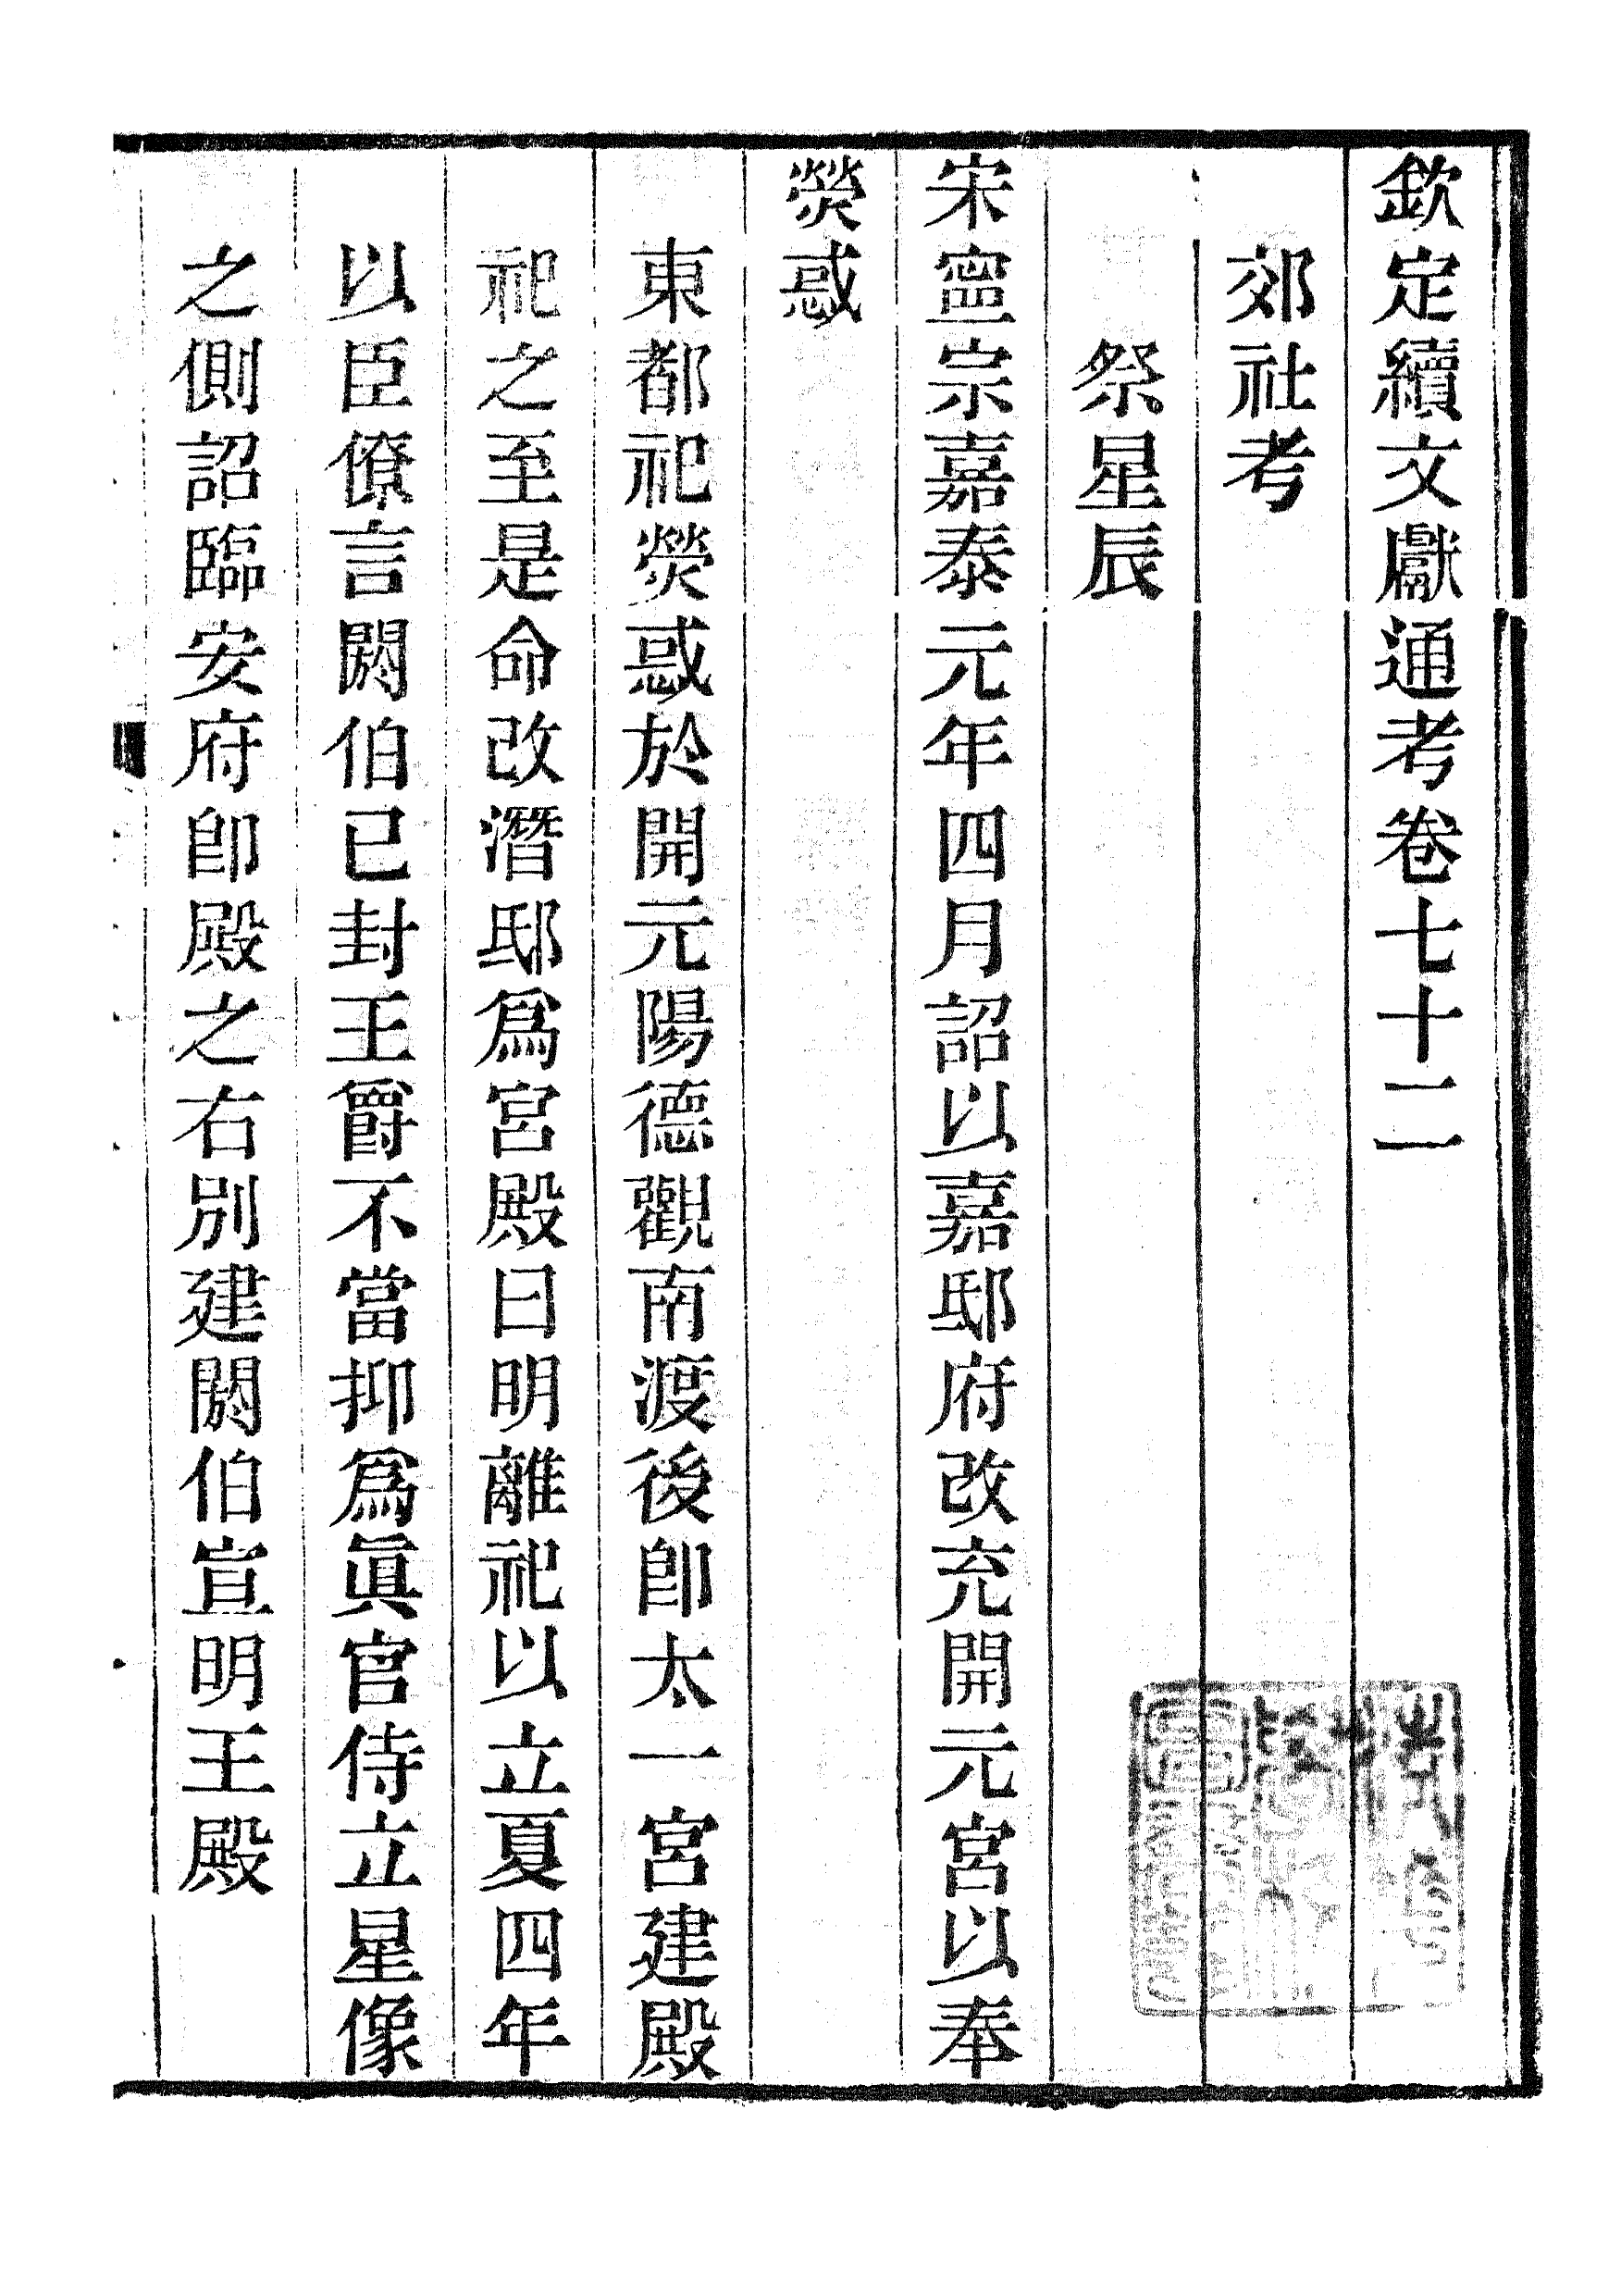 欽定續文獻通考卷七十二
郊社考
祭星辰
宋寧宗嘉泰元年四月詔以嘉邸府改充開元宮以奉
熒惑
東都祀熒惑於開元陽德觀南渡後卽太一宮建殿
祀之至是命改潛邸爲宮殿曰明離祀以立夏四年
以臣僚言閼伯已封王爵不當抑爲眞官侍立星像
之側詔臨安府卽殿之右別建閼伯宣明王殿